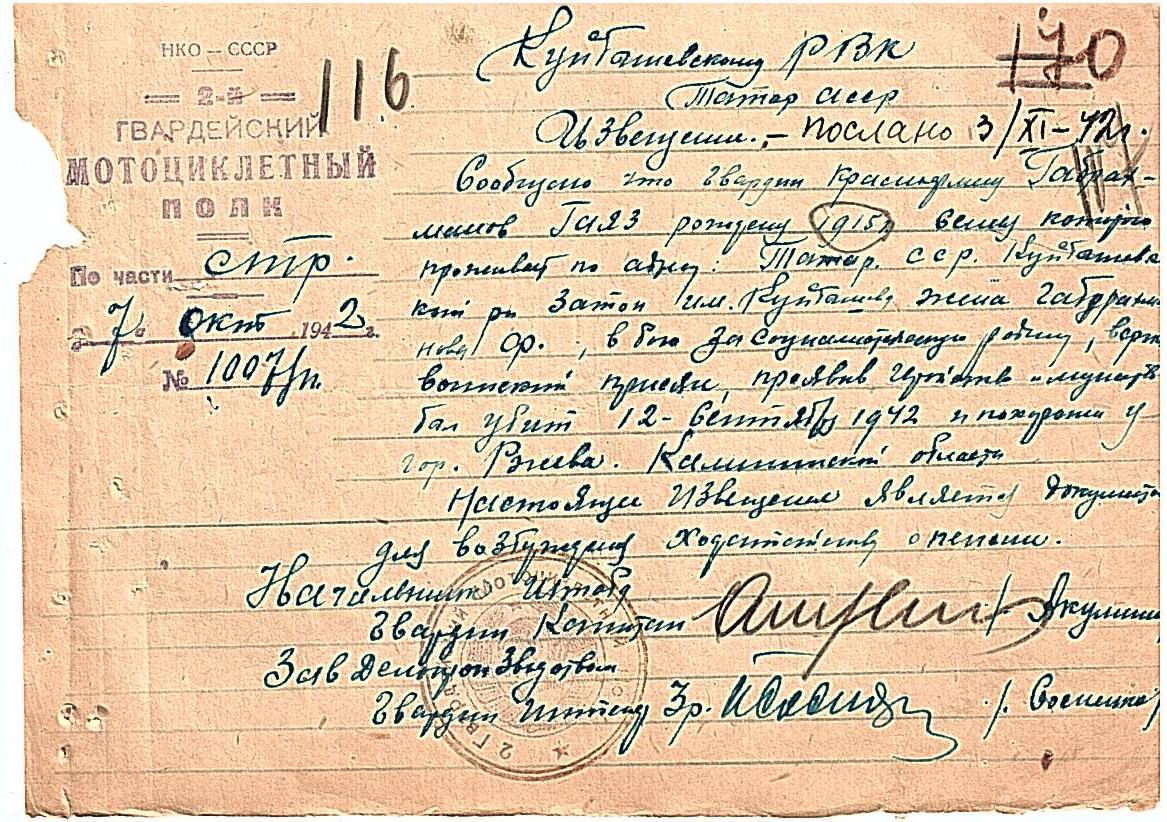 НКО — СССР
2-й
ГВАРДЕЙСКИЙ
МОТОЦИКЛЕТНЫЙ
ПОЛК
По части стр.
7 окт 1942 г.
№ 1007/п.
116
170
Куйбашевскому РВК
Татар АССР
Извещение. – послано 3/XI-42г.
Сообщаю что гвардии красноармеец
манов Гаяз рождения 1915г
проживает по адресу: Татар. ССР. Куйбашевс
кий р-н Затон им. Куйбашева жена Габдрахма
нова Ф., в бою за социалистическую родину, верн
воинской присяге, проявив геройство и мужеств
был убит 12 - сентября 1942 и похоронен у
гор. Ржева. Калининской области
Настоящее извещение является документ
для возбуждения ходатайства о пенсии.
Начальник штаба
Гвардии Капитан / Акулинин
Зав Делопроизводством
Гвардии
2 ГВ МОТОЦИКЛЕТНЫЙ